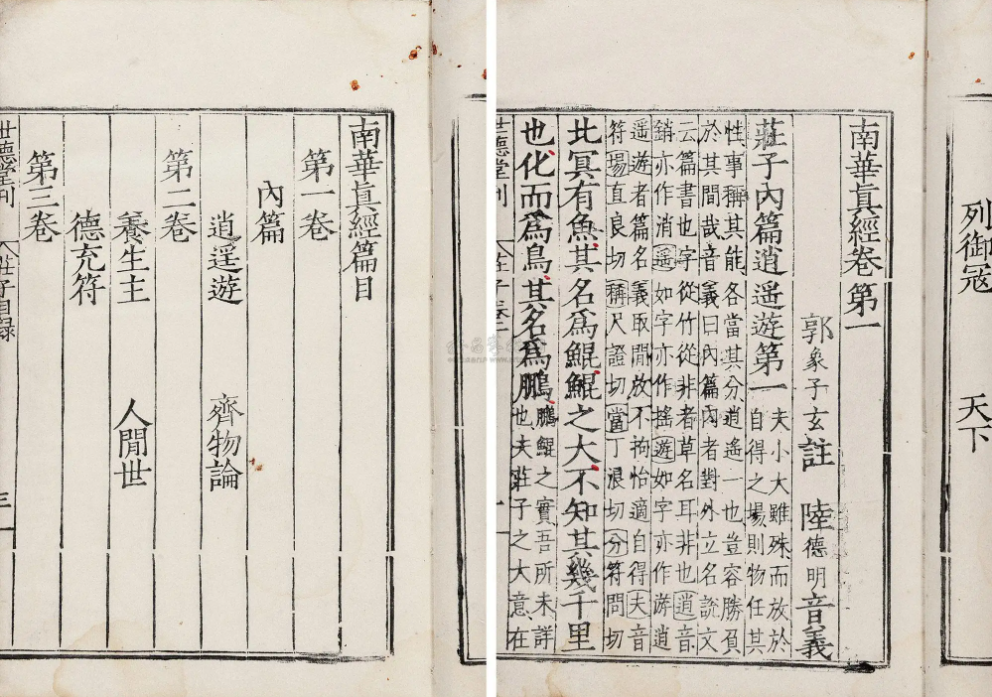 南華真經篇目
第一卷
內篇
逍遥遊 齊物論
第二卷
養生主 人閒世
德充符
第三卷
世德堂刊 莊子目錄 三
列御寇 天下
南華真經卷第一
郭象子玄註 陸德明音義
莊子內篇逍遥遊第一 夫小大雖殊而放於
自得之場則物任其
性事稱其能各當其分逍遥一也豈容勝負
於其間哉音義曰內篇內者對外立名說文
云篇書也字從竹從非者草名耳非也逍音
銷亦作消遥如字亦作搖遊如字亦作游逍
遥遊者篇名義取閒放不拘怡適自得夫音
符場直良切稱尺證切當丁浪切分符問切
北冥有魚其名爲鯤鯤之大不知其幾千里
也化而爲鳥其名爲鵬 鵬鯤之實吾所未詳
也夫莊子之大意在
世德堂刊 莊子卷一 一